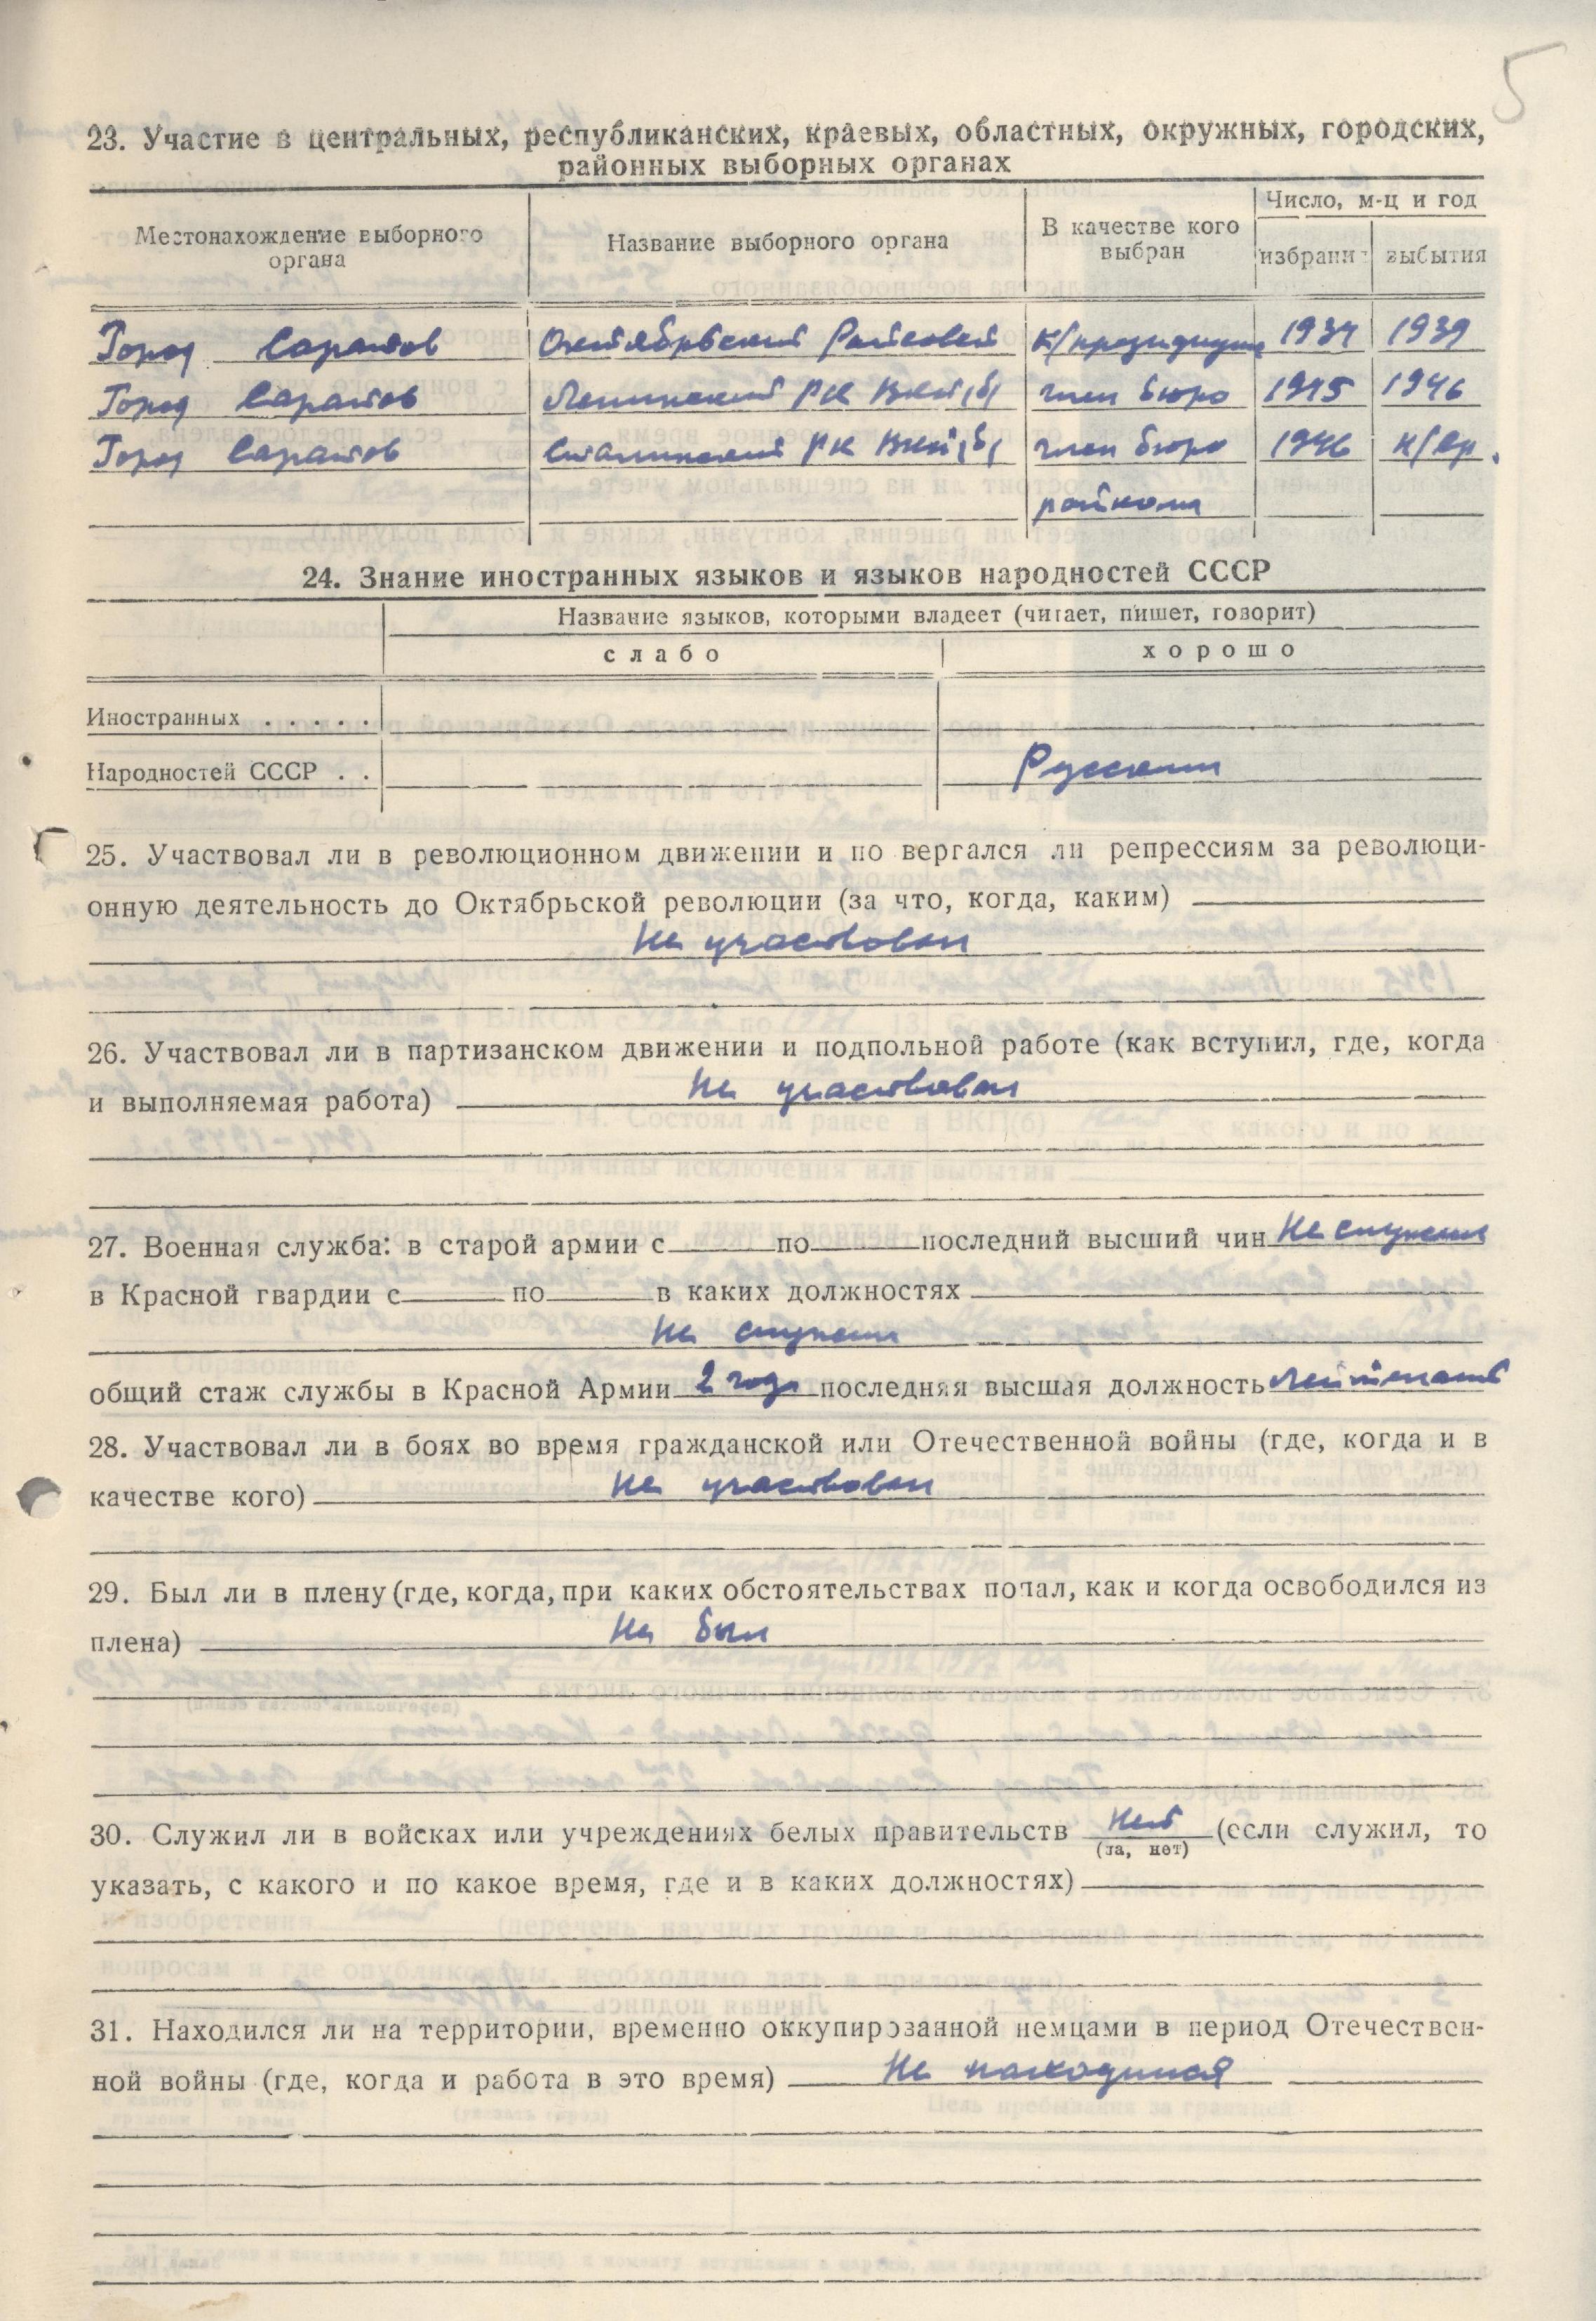 5
23. Участие в центральных, республиканских, краевых, областных, окружных, городских,
районных выборных органах
Местонахождение выборного органа | Название выборного органа | В качестве кого выбран | Число, м-ц и год
избрани | выбытия
Город Саратов | Октябрьский Райсовет | к/президиума | 1934 | 1939
Город Саратов | Ленинский РК ВКП(б) | член бюро | 1945 | 1946
Город Саратов | Сталинский РК ВКП(б) | член бюро | 1946 | н/вр.
райкома
24. Знание иностранных языков и языков народностей СССР
Название языков, которыми владеет (читает, пишет, говорит)
слабо | хорошо
Иностранных . . . . .
Народностей СССР . . | Русским
25. Участвовал ли в революционном движении и по вергался ли репрессиям за революци-
онную деятельность до Октябрьской революции (за что, когда, каким)
Не участвовал
26. Участвовал ли в партизанском движении и подпольной работе (как вступил, где, когда
и выполняемая работа) Не участвовал
27. Военная служба: в старой армии с по последний высший чин Не служил
в Красной гвардии с по в каких должностях
Не служил
общий стаж службы в Красной Армии 2 года последняя высшая должность Лейтенант
28. Участвовал ли в боях во время гражданской или Отечественной войны (где, когда и в
качестве кого) Не участвовал
29. Был ли в плену (где, когда, при каких обстоятельствах попал, как и когда освободился из
плена) Не был
30. Служил ли в войсках или учреждениях белых правительств Нет (если служил, то
(да, нет)
указать, с какого и по какое время, где и в каких должностях)
31. Находился ли на территории, временно оккупированной немцами в период Отечествен-
ной войны (где, когда и работа в это время) Не находился